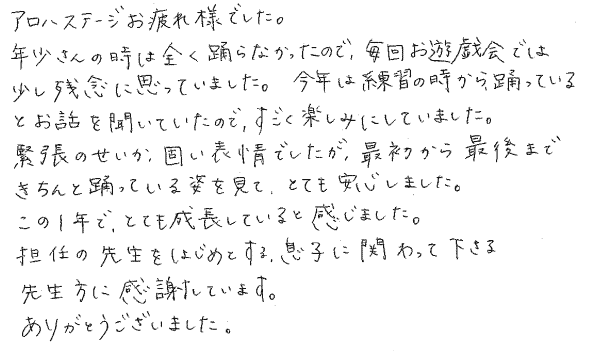 アロハステージお疲れ様でした。
年少さんの時は全く踊らなかったので、毎回お遊戯会では
少し残念に思っていました。 今年は練習の時から、踊っている
とお話を聞いていたので、すごく楽しみにしていました。
緊張のせいか、固い表情でしたが、最初から最後まで
きちんと踊っている姿を見て、とても安心しました。
この1年で、とても成長していると感じました。
担任の先生をはじめとする、息子に関わって下さる
先生方に感謝しています。
ありがとうございました。